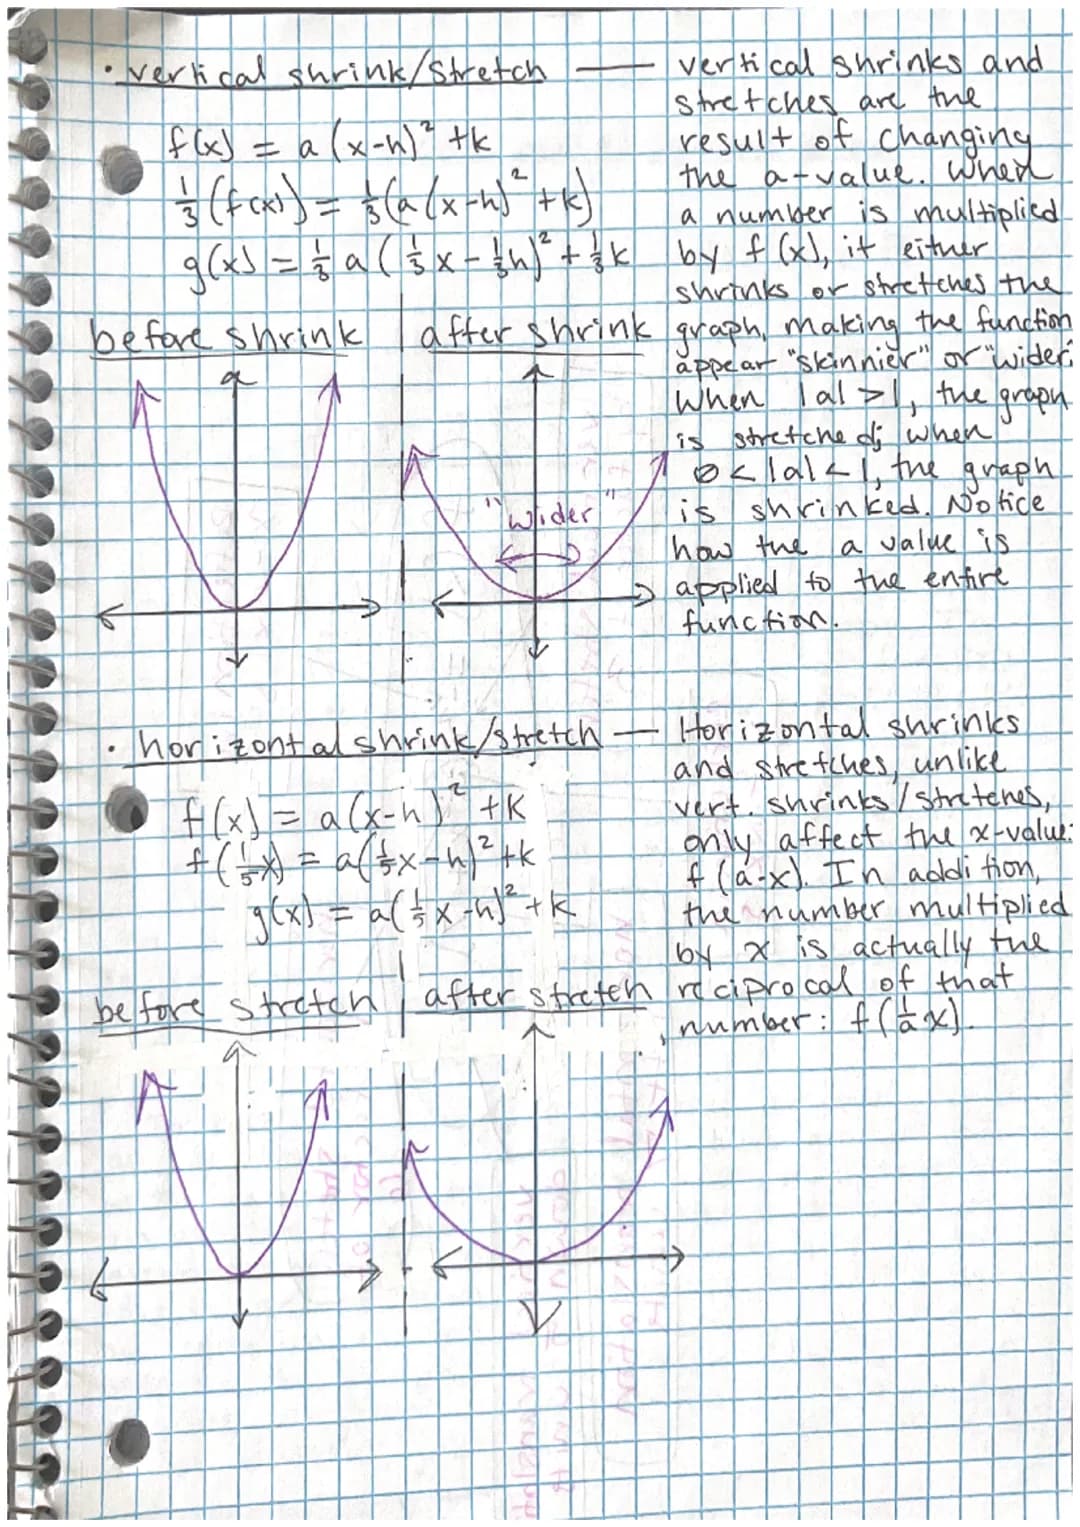 · vertical shrink/stretch —
f(x) = a(x-h)² +k
⅓(f(x)) = ⅓(a(x-h)² +k)
g(x) = ⅓a(⅓x - ⅓h)² + ⅓k
before shrink
after shrink
"wider"
vertical shrinks and
stretches are the
result of changing
the a-value. When
a number is multiplied
by f(x), it either
shrinks or stretches the
graph, making the function
appear "skinnier" or "wider."
When |a|>1, the graph
is stretched; when
0<|a|<1, the graph
is shrinked. Notice
how the a value is
applied to the entire
function.
· horizontal shrink/stretch —
f(x) = a(x-h)² +k
f(⅕x) = a(⅕x-h)² +k
g(x) = a(⅕x-h)² +k
before stretch
after stretch
Horizontal shrinks
and stretches, unlike
vert. shrinks/stretches,
only affect the x-value:
f(a·x). In addition,
the number multiplied
by x is actually the
reciprocal of that
number: f(1/a x).